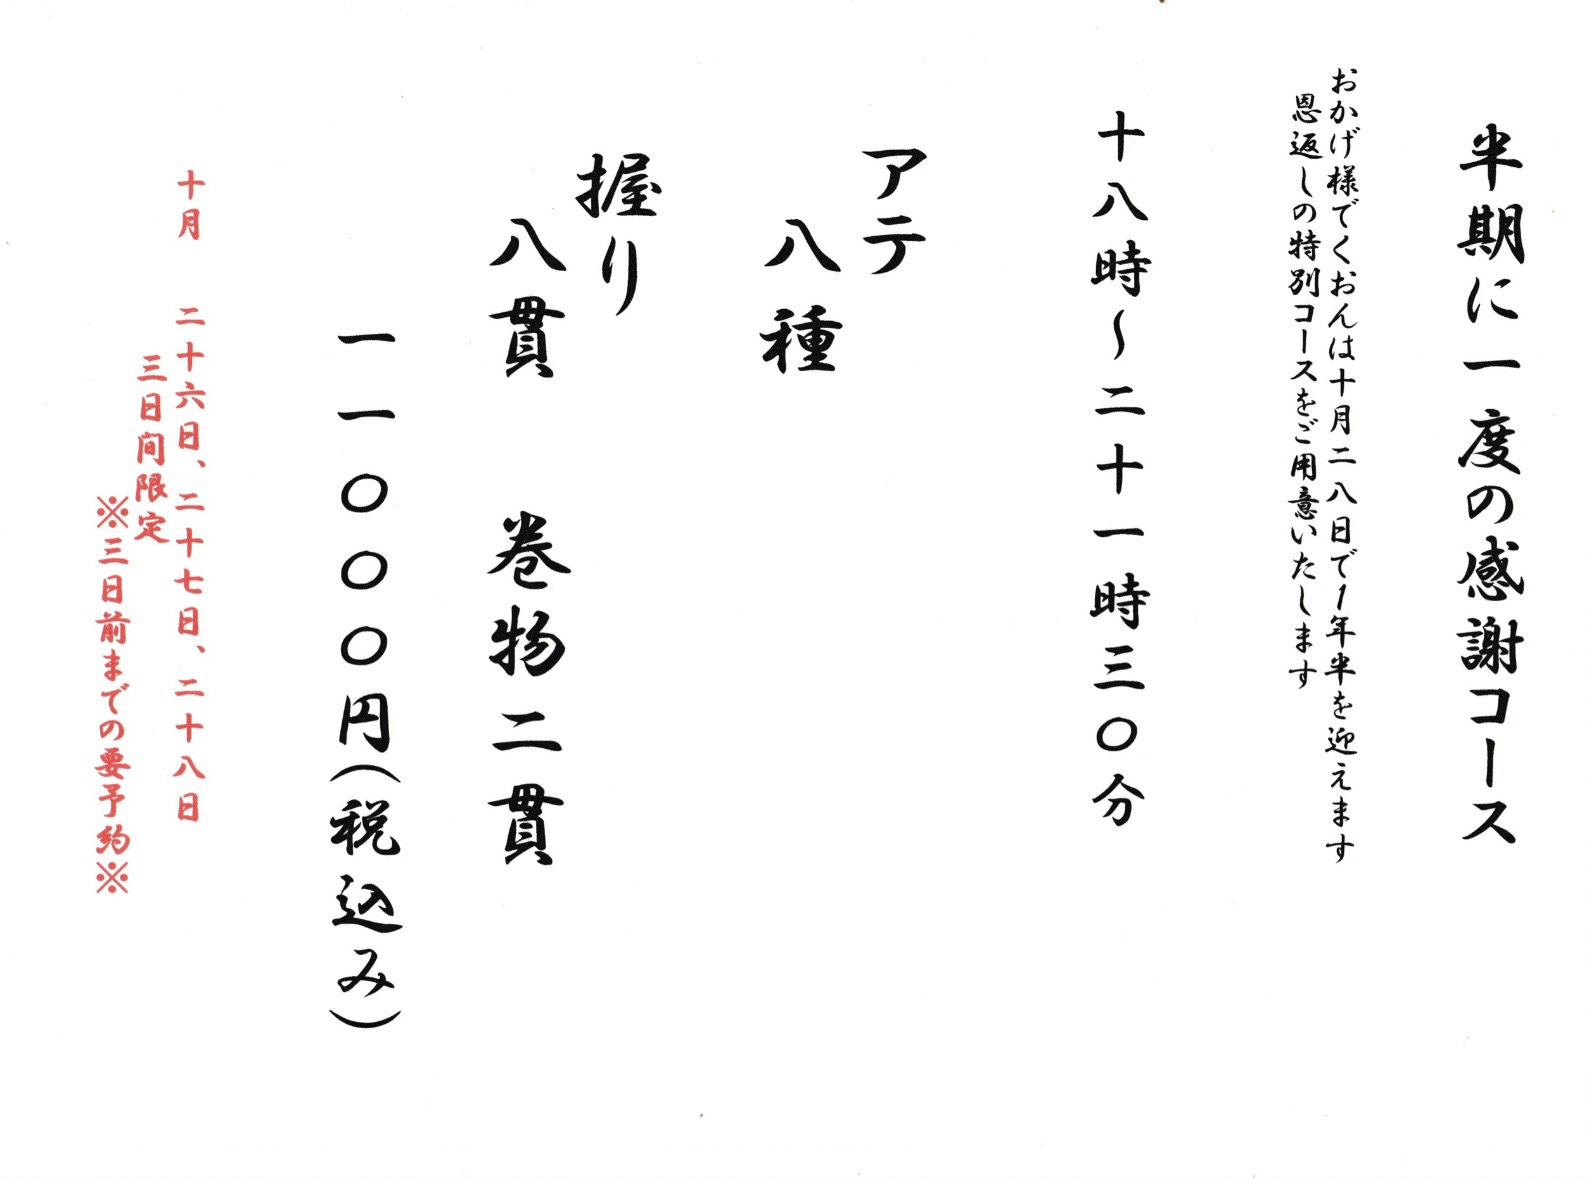 半期に一度の感謝コース
おかげ様でくおんは十月二八日で1年半を迎えます
恩返しの特別コースをご用意いたします
十八時～二十一時三〇分
アテ
八種
握り
八貫　巻物二貫
一一〇〇〇円(税込み)
十月　二十六日、二十七日、二十八日
三日間限定
※三日前までの要予約※